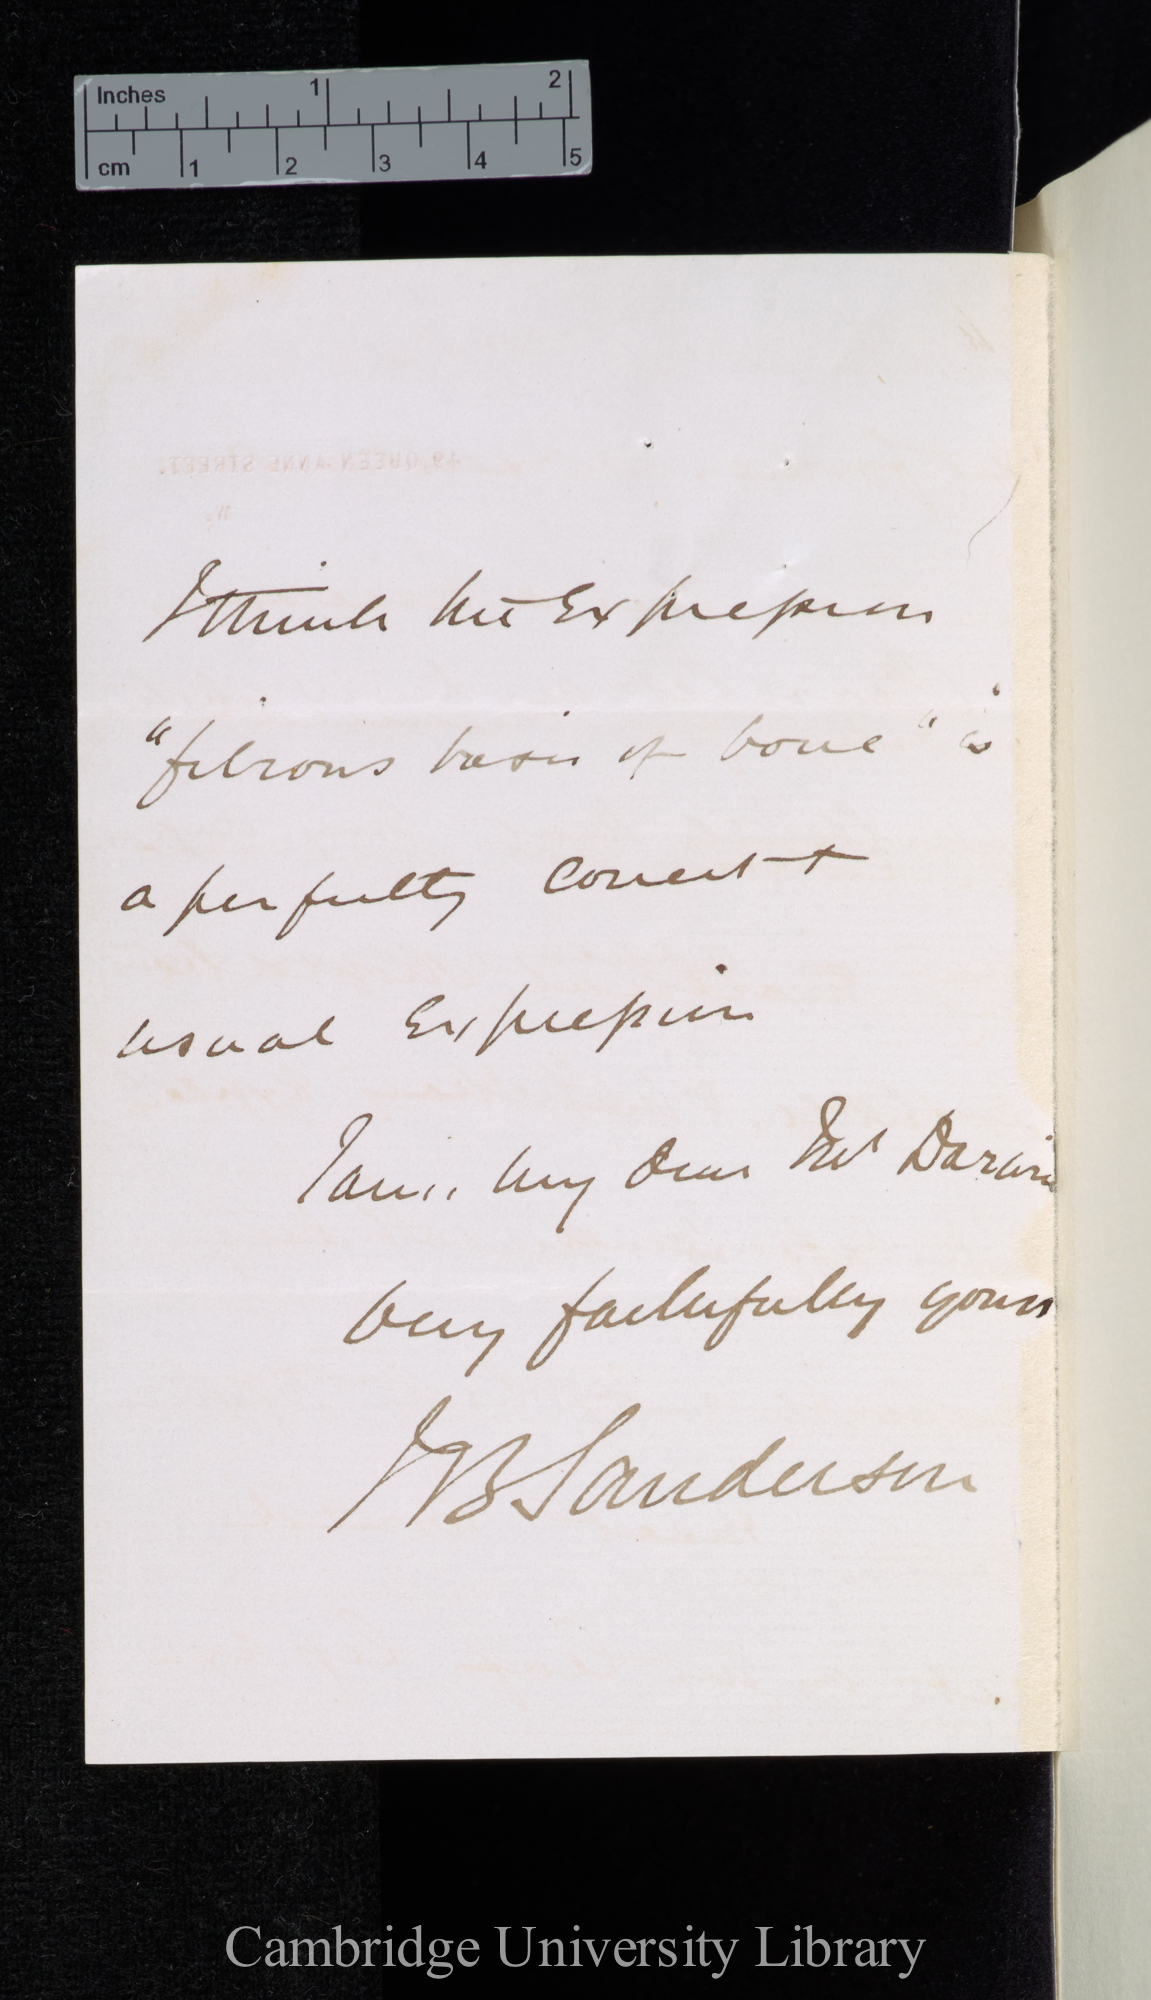 Inches 1 2
cm 1 2 3 4 5
49, QUEEN ANNE STREET.
W.
I think the Expression
"fibrous basis of bone" is
a perfectly correct +
usual Expression
I am, my dear Mr Darwin
Very faithfully yours
J B Sanderson
Cambridge University Library